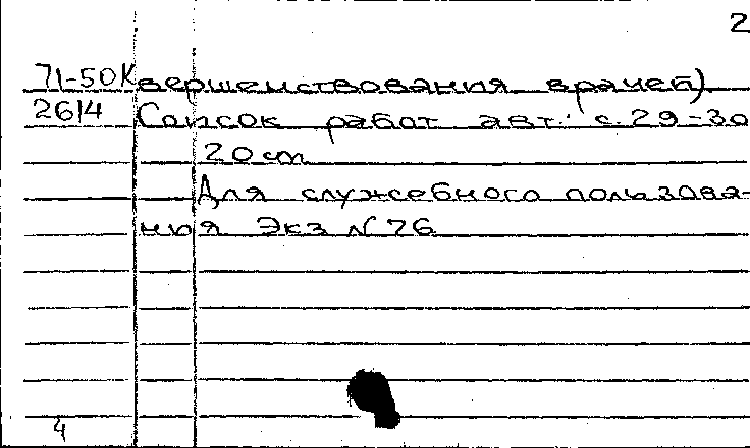 2
71-50К вершенствования врачей)
2614 Список работ авт.: с. 29-30
20 ст.
Для служебного пользова-
ния Экз N 76
4